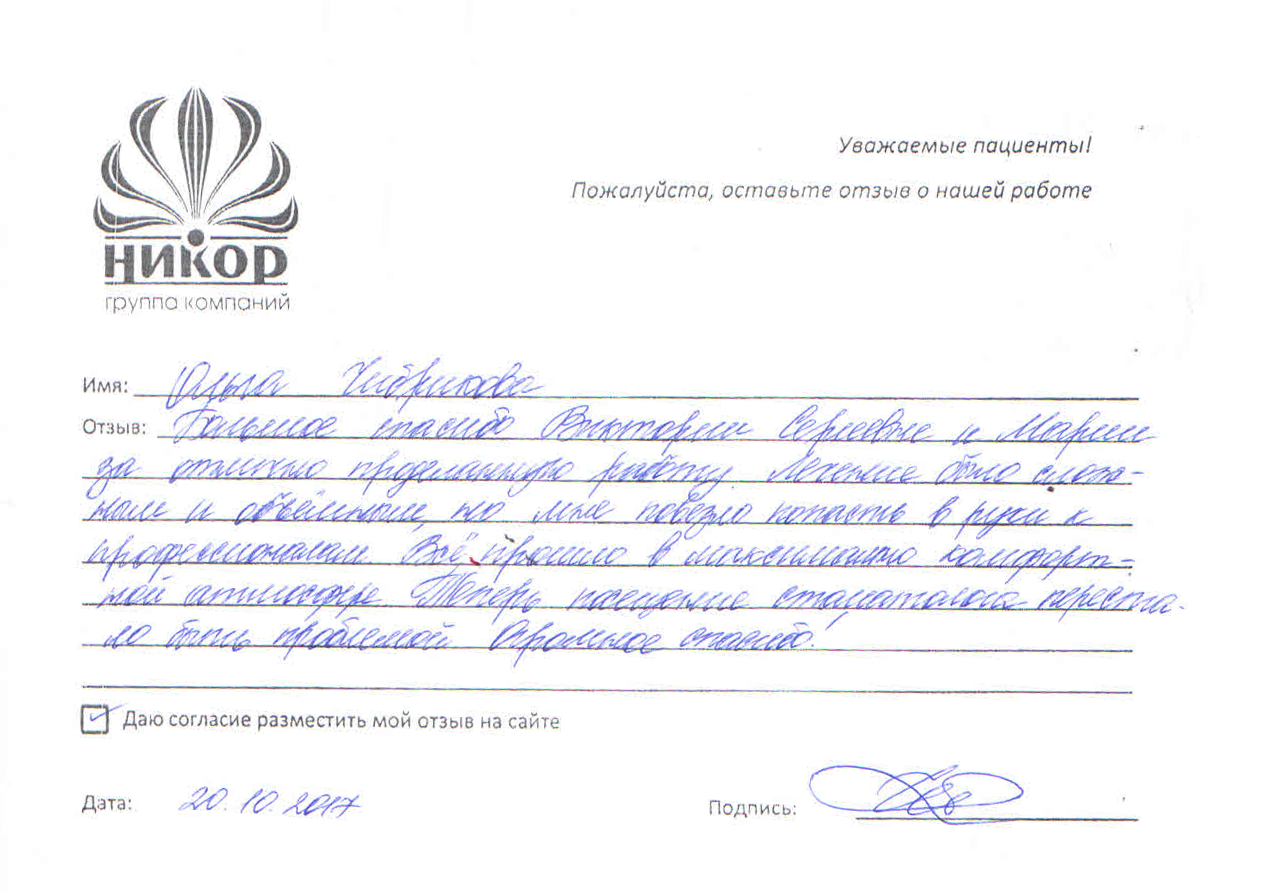 Уважаемые пациенты!
Пожалуйста, оставьте отзыв о нашей работе
НИКОР
группа компаний
Имя: Ольга Чибрикова
Отзыв: Большое спасибо Виктории Сергеевне и Марии
за отлично проделанную работу. Лечение было слож-
ным и объёмным, но мне повезло попасть в руки к
профессионалам. Всё прошло в максимально комфорт-
ной атмосфере. Теперь посещение стоматолога переста-
ло быть проблемой. Огромное спасибо!
Даю согласие разместить мой отзыв на сайте
Дата: 20.10.2017
Подпись: